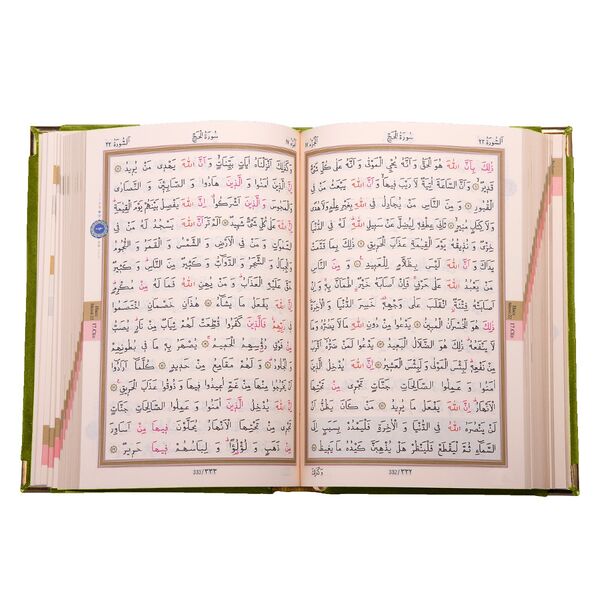 السورة ٢٢
سورة الحج
ذٰلِكَ بِاَنَّ اللّٰهَ هُوَ الْحَقُّ وَاَنَّهُ يُحْيِ الْمَوْتٰى وَاَنَّهُ عَلٰى كُلِّ شَيْءٍ
قَدِيرٌ وَاَنَّ السَّاعَةَ اٰتِيَةٌ لَا رَيْبَ فِيهَا وَاَنَّ اللّٰهَ يَبْعَثُ مَنْ فِي
الْقُبُورِ وَمِنَ النَّاسِ مَنْ يُجَادِلُ فِي اللّٰهِ بِغَيْرِ عِلْمٍ وَلَا هُدًى
وَلَا كِتَابٍ مُنِيرٍ ثَانِيَ عِطْفِهِ لِيُضِلَّ عَنْ سَبِيلِ اللّٰهِ لَهُ فِي الدُّنْيَا
خِزْيٌ وَنُذِيقُهُ يَوْمَ الْقِيٰمَةِ عَذَابَ الْحَرِيقِ ذٰلِكَ بِمَا قَدَّمَتْ
يَدَاكَ وَاَنَّ اللّٰهَ لَيْسَ بِظَلَّامٍ لِلْعَبِيدِ وَمِنَ النَّاسِ مَنْ يَعْبُدُ
اللّٰهَ عَلٰى حَرْفٍ فَاِنْ اَصَابَهُ خَيْرٌ اطْمَاَنَّ بِهِ وَاِنْ
اَصَابَتْهُ فِتْنَةٌ انْقَلَبَ عَلٰى وَجْهِهِ خَسِرَ الدُّنْيَا وَالْاٰخِرَةَ
ذٰلِكَ هُوَ الْخُسْرَانُ الْمُبِينُ يَدْعُوا مِنْ دُونِ اللّٰهِ مَا لَا يَضُرُّهُ وَمَا
لَا يَنْفَعُهُ ذٰلِكَ هُوَ الضَّلَالُ الْبَعِيدُ يَدْعُوا لَمَنْ ضَرُّهُ اَقْرَبُ
مِنْ نَفْعِهِ لَبِئْسَ الْمَوْلٰى وَلَبِئْسَ الْعَشِيرُ اِنَّ اللّٰهَ يُدْخِلُ
الَّذِينَ اٰمَنُوا وَعَمِلُوا الصَّالِحَاتِ جَنَّاتٍ تَجْرِي مِنْ تَحْتِهَا
الْاَنْهَارُ اِنَّ اللّٰهَ يَفْعَلُ مَا يُرِيدُ مَنْ كَانَ يَظُنُّ اَنْ
لَنْ يَنْصُرَهُ اللّٰهُ فِي الدُّنْيَا وَالْاٰخِرَةِ فَلْيَمْدُدْ بِسَبَبٍ اِلَى
السَّمَاءِ ثُمَّ لْيَقْطَعْ فَلْيَنْظُرْ هَلْ يُذْهِبَنَّ كَيْدُهُ مَا يَغِيظُ
332/٣٣٢
وكذلك
السورة ٢٢
سورة الحج
وَكَذٰلِكَ اَنْزَلْنَاهُ اٰيَاتٍ بَيِّنَاتٍ وَاَنَّ اللّٰهَ يَهْدِي مَنْ يُرِيدُ
اِنَّ الَّذِينَ اٰمَنُوا وَالَّذِينَ هَادُوا وَالصَّابِئِينَ وَالنَّصَارٰى
وَالْمَجُوسَ وَالَّذِينَ اَشْرَكُوا اِنَّ اللّٰهَ يَفْصِلُ بَيْنَهُمْ يَوْمَ الْقِيٰمَةِ
اِنَّ اللّٰهَ عَلٰى كُلِّ شَيْءٍ شَهِيدٌ اَلَمْ تَرَ اَنَّ اللّٰهَ يَسْجُدُ لَهُ مَنْ فِي
السَّمٰوَاتِ وَمَنْ فِي الْاَرْضِ وَالشَّمْسُ وَالْقَمَرُ وَالنُّجُومُ
وَالْجِبَالُ وَالشَّجَرُ وَالدَّوَابُّ وَكَثِيرٌ مِنَ النَّاسِ وَكَثِيرٌ
حَقَّ عَلَيْهِ الْعَذَابُ وَمَنْ يُهِنِ اللّٰهُ فَمَا لَهُ مِنْ مُكْرِمٍ
اِنَّ اللّٰهَ يَفْعَلُ مَا يَشَاءُ هٰذَانِ خَصْمَانِ اخْتَصَمُوا
فِي رَبِّهِمْ فَالَّذِينَ كَفَرُوا قُطِّعَتْ لَهُمْ ثِيَابٌ مِنْ نَارٍ يُصَبُّ
مِنْ فَوْقِ رُؤُسِهِمُ الْحَمِيمُ يُصْهَرُ بِهِ مَا فِي بُطُونِهِمْ
وَالْجُلُودُ وَلَهُمْ مَقَامِعُ مِنْ حَدِيدٍ كُلَّمَا اَرَادُوا
اَنْ يَخْرُجُوا مِنْهَا مِنْ غَمٍّ اُعِيدُوا فِيهَا وَذُوقُوا عَذَابَ الْحَرِيقِ
اِنَّ اللّٰهَ يُدْخِلُ الَّذِينَ اٰمَنُوا وَعَمِلُوا الصَّالِحَاتِ جَنَّاتٍ
تَجْرِي مِنْ تَحْتِهَا الْاَنْهَارُ يُحَلَّوْنَ فِيهَا مِنْ اَسَاوِرَ
مِنْ ذَهَبٍ وَلُؤْلُؤًا وَلِبَاسُهُمْ فِيهَا حَرِيرٌ
333/٣٣٣